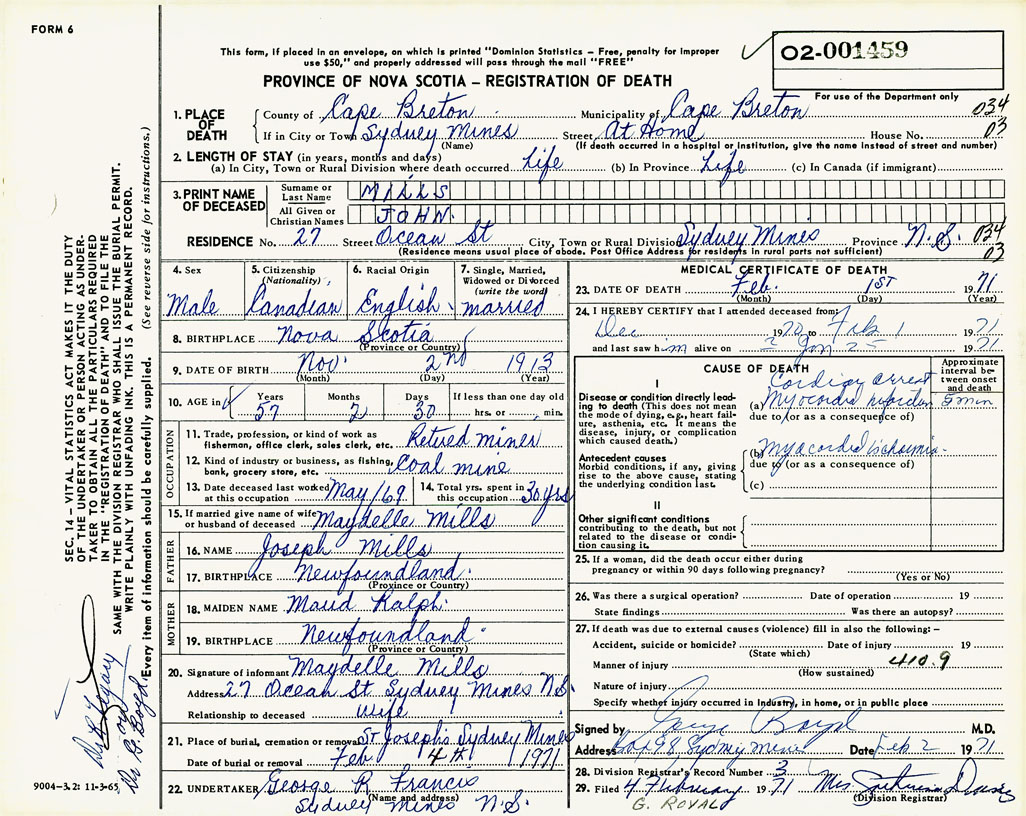 FORM 6
This form, if placed in an envelope, on which is printed "Dominion Statistics – Free, penalty for improper
use $50," and properly addressed will pass through the mail "FREE"
02-001459
PROVINCE OF NOVA SCOTIA – REGISTRATION OF DEATH
For use of the Department only
1. PLACE OF DEATH County of Cape Breton Municipality of Cape Breton 034
If in City or Town Sydney Mines Street At Home House No. 03
(Name) (If death occurred in a hospital or institution, give the name instead of street and number)
2. LENGTH OF STAY (in years, months and days)
(a) In City, Town or Rural Division where death occurred Life (b) In Province Life (c) In Canada (if immigrant)
3. PRINT NAME OF DECEASED Surname or Last Name MILLS
All Given or Christian Names JOHN.
RESIDENCE No. 27 Street Ocean St City, Town or Rural Division Sydney Mines Province N.S. 034
03
(Residence means usual place of abode. Post Office Address for residents in rural parts not sufficient)
4. Sex Male
5. Citizenship (Nationality) Canadian
6. Racial Origin English
7. Single, Married, Widowed or Divorced (write the word) married
8. BIRTHPLACE Nova Scotia
(Province or Country)
9. DATE OF BIRTH Nov. 2nd 1913
(Month) (Day) (Year)
10. AGE in Years Months Days If less than one day old
57 2 30 hrs. or min.
OCCUPATION
11. Trade, profession, or kind of work as fisherman, office clerk, sales clerk, etc. Retired miner
12. Kind of industry or business, as fishing, bank, grocery store, etc. Coal mine
13. Date deceased last worked at this occupation May/69
14. Total yrs. spent in this occupation 30 yrs
15. If married give name of wife or husband of deceased Maydelle Mills
FATHER
16. NAME Joseph Mills
17. BIRTHPLACE Newfoundland.
(Province or Country)
MOTHER
18. MAIDEN NAME Maud Ralph.
19. BIRTHPLACE Newfoundland.
(Province or Country)
20. Signature of informant Maydelle Mills
Address 27 Ocean St Sydney Mines N.S.
Relationship to deceased wife
21. Place of burial, cremation or removal St Joseph's Sydney Mines
Date of burial or removal Feb 4th, 1971
22. UNDERTAKER George R Francis
(Name and address)
Sydney Mines N.S.
MEDICAL CERTIFICATE OF DEATH
23. DATE OF DEATH Feb. 1ST 1971
(Month) (Day) (Year)
24. I HEREBY CERTIFY that I attended deceased from:
Dec 1970 to Feb 1 1971
and last saw him alive on Jan 25 1971
CAUSE OF DEATH
Approximate interval between onset and death
I
Disease or condition directly leading to death (This does not mean the mode of dying, e.g., heart failure, asthenia, etc. It means the disease, injury, or complication which caused death.)
Cardiac arrest
(a) 5 min
due to (or as a consequence of)
Antecedent causes
Morbid conditions, if any, giving rise to the above cause, stating the underlying condition last.
(b)
due to (or as a consequence of)
(c)
II
Other significant conditions
contributing to the death, but not related to the disease or condition causing it.
25. If a woman, did the death occur either during
pregnancy or within 90 days following pregnancy?
(Yes or No)
26. Was there a surgical operation? Date of operation 19
State findings Was there an autopsy?
27. If death was due to external causes (violence) fill in also the following: –
Accident, suicide or homicide? Date of injury 19
(State which)
Manner of injury 410.9
(How sustained)
Nature of injury
Specify whether injury occurred in industry, in home, or in public place
Signed by Boyd M.D.
Address Box 98 Sydney Mines Date Feb 2 1971
28. Division Registrar's Record Number 3
29. Filed 4 February 1971 Mrs
(Division Registrar)
G. ROYAL
SEC. 14 – VITAL STATISTICS ACT MAKES IT THE DUTY
OF THE UNDERTAKER OR PERSON ACTING AS UNDER-
TAKER TO OBTAIN ALL THE PARTICULARS REQUIRED
IN THE "REGISTRATION OF DEATH" AND TO FILE THE
SAME WITH THE DIVISION REGISTRAR WHO SHALL ISSUE THE BURIAL PERMIT.
WRITE PLAINLY WITH UNFADING INK. THIS IS A PERMANENT RECORD.
Every item of information should be carefully supplied. (See reverse side for instructions.)
Dr
or
Dr Boyd
9004-3.2: 11-3-65